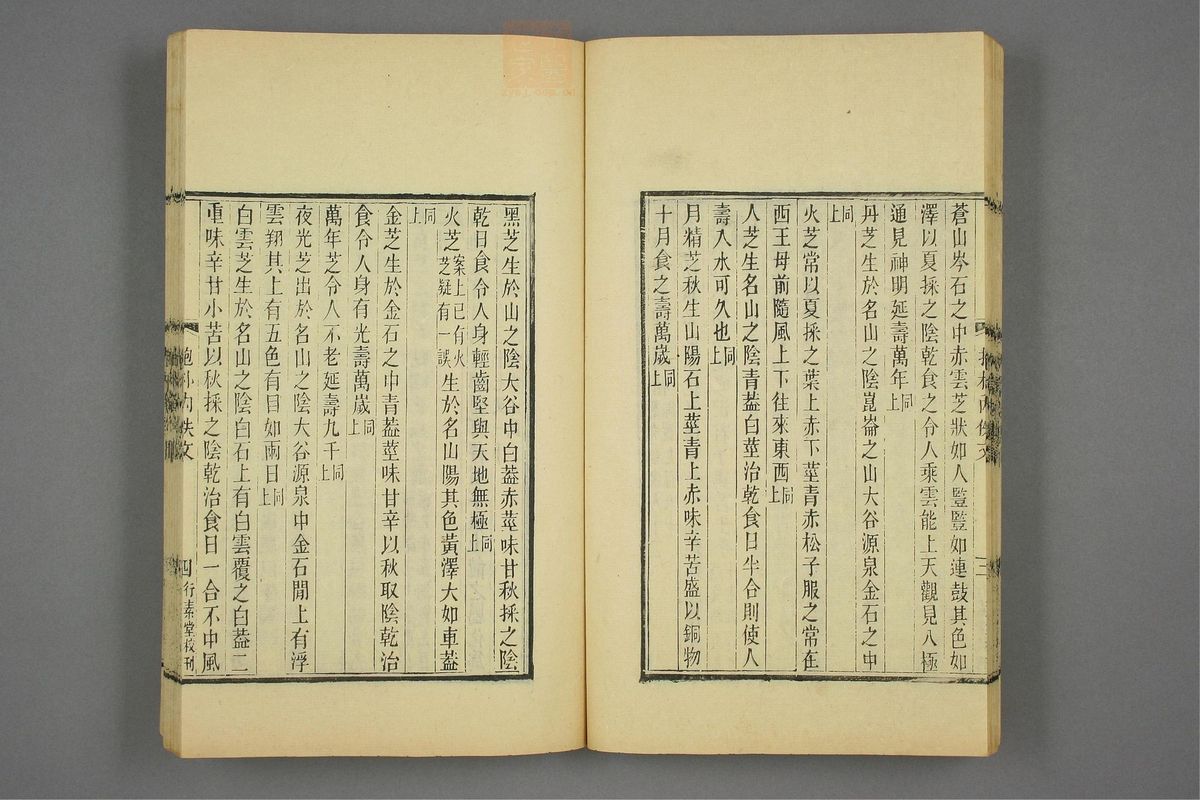 蒼山岑石之中赤雲芝狀如人豎豎如連鼓其色如
澤以夏採之陰乾食之令人乘雲能上天觀見八極
通見神明延壽萬年同上
丹芝生於名山之陰崑崙之山大谷源泉金石之中
同上
火芝常以夏採之葉上赤下莖青赤松子服之常在
西王母前隨風上下往來東西同上
人芝生名山之陰青葢白莖治乾食日半合則使人
壽入水可久也同上
月精芝秋生山陽石上莖青上赤味辛苦盛以銅物
十月食之壽萬歲同上
黑芝生於山之陰大谷中白葢赤莖味甘秋採之陰
乾日食令人身輕齒堅與天地無極同上
火芝案上已有火芝疑有一誤生於名山陽其色黃澤大如車葢
同上
金芝生於金石之中青葢莖味甘辛以秋取陰乾治
食令人身有光壽萬歲同上
萬年芝令人不老延壽九千同上
夜光芝出於名山之陰大谷源泉中金石閒上有浮
雲翔其上有五色有目如兩日同上
白雲芝生於名山之陰白石上有白雲覆之白葢二
重味辛甘小苦以秋採之陰乾治食日一合不中風
抱朴內佚文
四
行素堂校刊